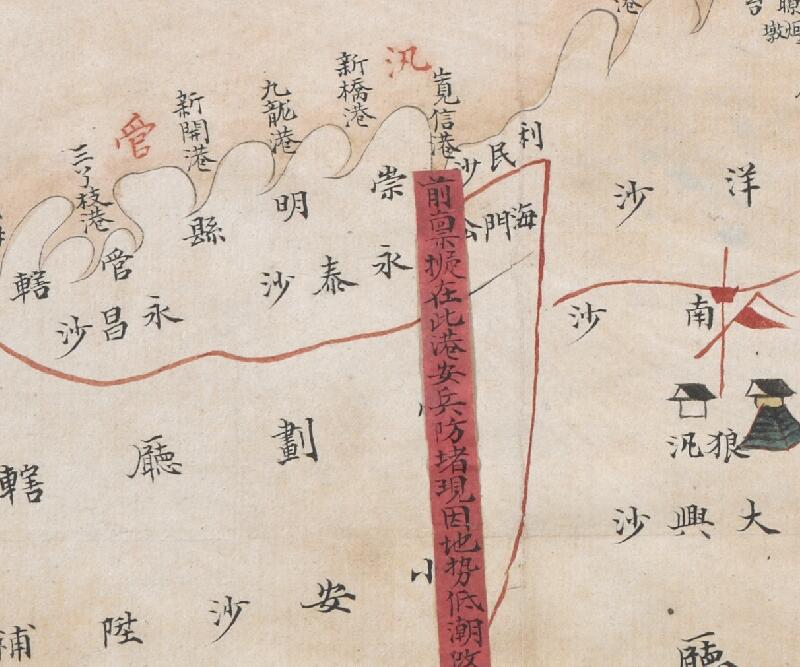 汛
管
新橋港
九龍港
新開港
三丫枝港
信港
利民沙
海門
崇明縣
管轄
永泰沙
永昌沙
前稟擬在此港安兵防堵現因地勢低潮
洋沙
南沙
狼汛
大興沙
劃廳轄
小安沙
陞
廳
港
墩